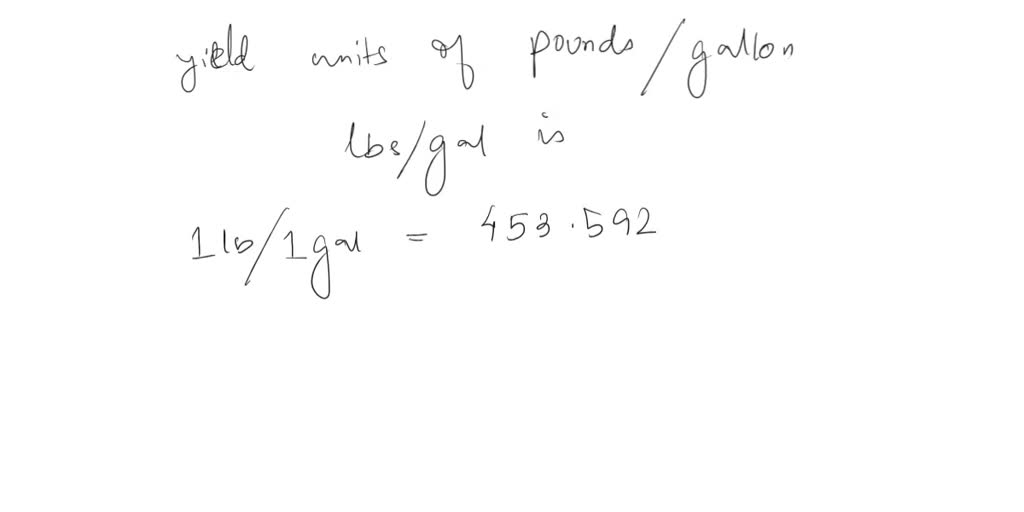 yield units of pounds/gallon
lbs/gal is
1lb/1gal = 453.592